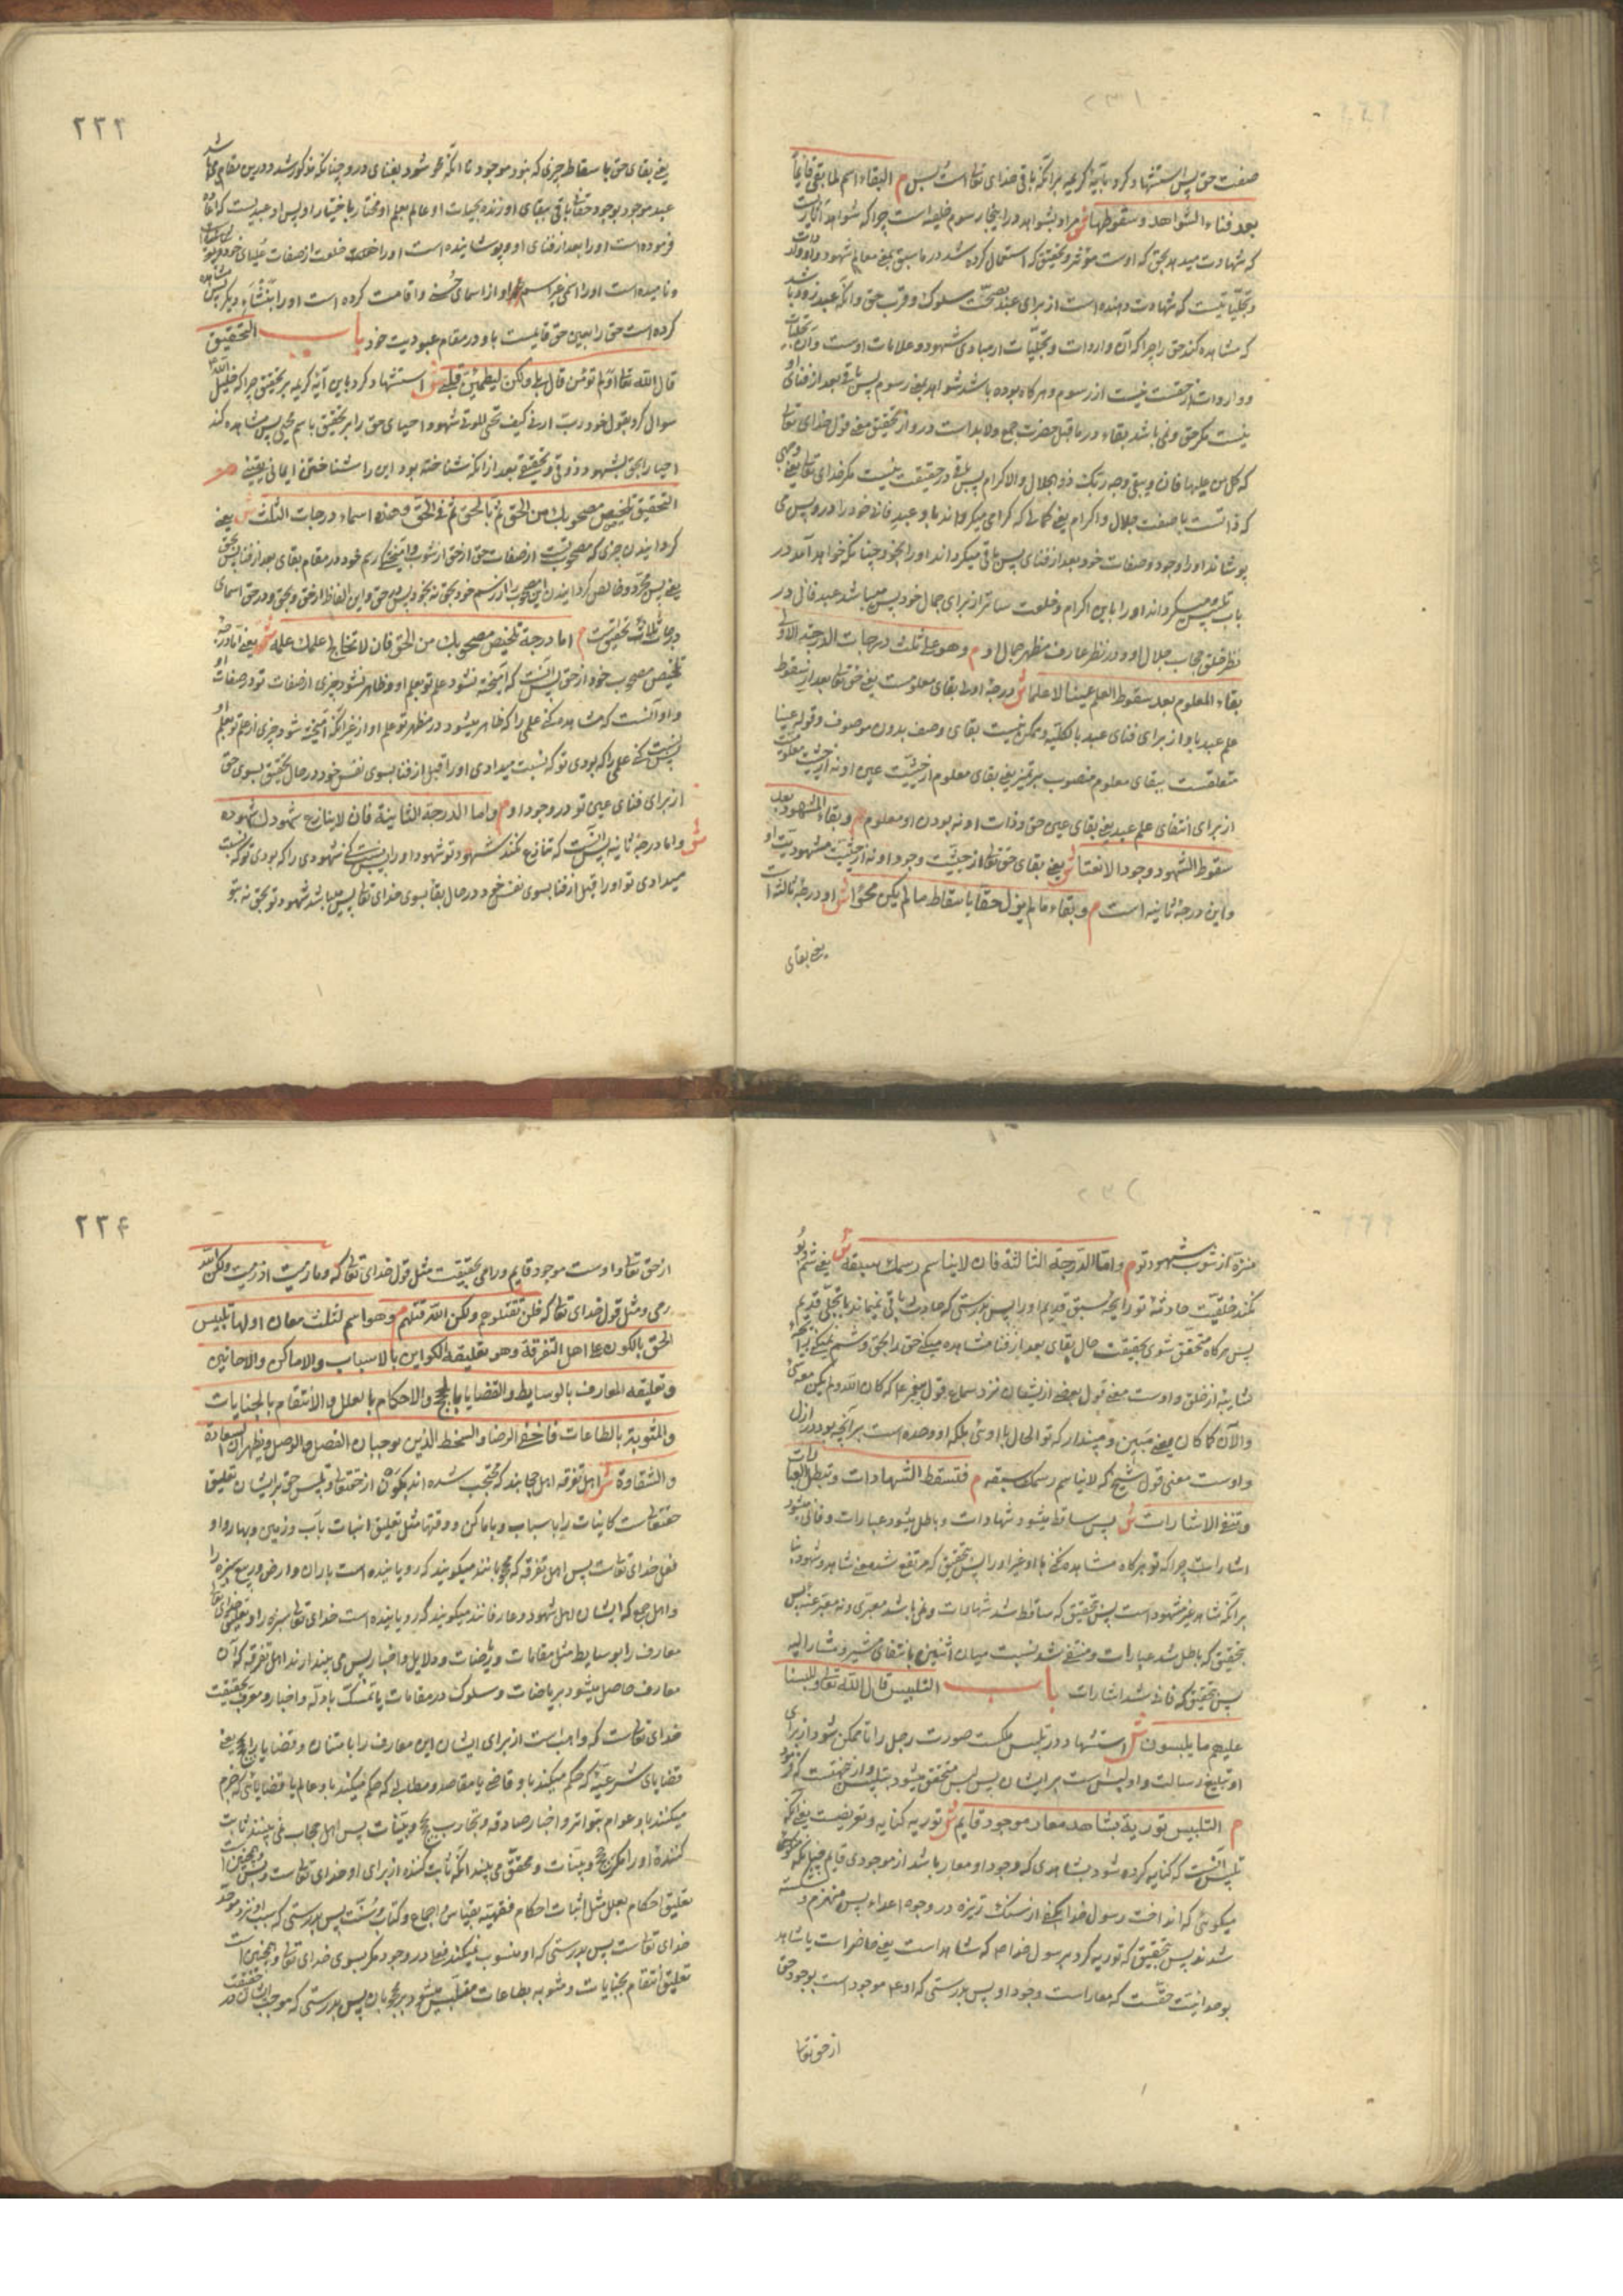 صفت حق پس استشهاد کرد بآیهٔ کریمه برآنکه باقی خدای تعالی است بس م البقاء اسم لما بقی قایماً
بعد فناء الشواهد وسقوطها ش مراد بشواهد در اینجا رسوم خلقیه است چرا که شواهد آثاریست
که شهادت میدهد بحق که اوست مؤثر و تحقیق که استعمال کرده شد در ما سبق یعنی معالم شهود واو واردات
وتجلیاتیست که شهادت دهنده است از برای عبد بصحّت سلوک و قرب حق وآنکه عبد زود باشد
که مشاهده کند حق را چرا که آن واردات وتجلّیات از مبادی شهود و علامات اوست وآن تجلیات
وواردات از حقست نیست از رسوم وهر کاه بوده باشد شواهد یعنی رسوم پس باقی بعد از فنای او
نیست مکر حق ونمی باشد بقاء در ما قبل حضرت جمع ولابد است درو از تحقیق معنی قول خدای تعالی
که کل من علیها فان ویبقی وجه ربک ذو الجلال والاکرام پس باقی در حقیقت نیست مکر خدای تعالی یعنی وجهی
که ذاتست با صفت جلال واکرام یعنی کمالی که کرامی میکرداند باو عبد فانی خود را درو پس می
پوشاند اورا وجود وصفات خود بعد از فنای پس باقی میکرداند اورا بخود چنانکه خواهد آمد در
باب تلبیس میکرداند اورا باین اکرام وخلعت ساتر از برای جمال خود پس میباشد عبد فانی در
نظر خلق حجاب جلال او ودر نظر عارف مظهر جمال او م وهو علی ثلث درجات الدرجة الاولی
بقاء المعلوم بعد سقوط العلم عیناً لا علماً ش درجهٔ اولی بقای معلومست یعنی حق تعالی بعد از سقوط
علم عبد باو از برای فنای عبد بالکلیّه وممکن نیست بقای وصف بدون موصوف وقوله عیناً
متعلقست ببقای معلوم منصوب بر تمیز یعنی بقای معلوم از حیثیّت عین او نه از حیثیت معلومیت
از برای انتفای علم عبد یعنی بقای عین حق وذات او نه بودن او معلوم م وبقاء المشهود بعد
سقوط الشهود وجوداً لا نعتاً ش یعنی بقای حق تعالی از حیثیّت وجود او نه از حیثیت مشهودیّت او
واین درجهٔ ثانیه است م وبقاء ما لم یزل حقّاً باسقاط ما لم یکن محواً ش او درجهٔ ثالثه است
یعنی بقای
۲۲۳
یعنی بقای حق با سقاط چیزی که نبود موجود تا آنکه محو شود بفنای درو چنانکه مذکور شد ودرین مقام می باشد
عبد موجود بوجود حق تعالی باقی ببقای او زنده بحیات او عالم بعلم او مختار باختیار او پس او عبدیست که افاده
فرموده است اورا بعد از فنای او وپوشانیده است اورا خلعت از صفات علیای خود
ونامیده است اورا اسمی از اسمای حُسنی واقامت کرده است اورا بنَشْاَءِ دیکر پس مشاهده
کرده است حق را بعین حق قایمست باو در مقام عبودیت خود باب التحقیق
قال الله تعالی اولم تؤمن قال بلی ولکن لیطمئنّ قلبی ش استشهاد کرد باین آیهٔ کریمه بر تحقیق چرا که خلیل الله
سؤال کرد بقول خود ربّ ارنی کیف تحیی الموتی شهود احیای حق را بر تحقیق باسم محیی پس مشاهده کند
احیا را بحق بشهود ذوقی وتحقیقی بعد از آنکه شناخته بود این را شناختنی ایمانی یقینی م
التحقیق تلخیص مصحوبک من الحق ثم بالحق ثم فی الحق وهذه اسماء درجات الثلث ش یعنی
کردانیدن چیزی که مصحوب تست از صفات حق از حق از شوب وآمیختکی رسم خود در مقام بقای بعد از فنا بحق
یعنی پس مجرّد وخالص کردانیدن این مصحوب از رسم خود بحق نه بخود پس در حق واین الفاظ از حق وبحق ودر حق اسمای
درجات ثلاثه تحقیقست م اما درجة تلخیص مصحوبک من الحق فان لا یخالج علمک علمه ش یعنی اما درجهٔ
تلخیص مصحوب خود از حق پس آنست که آمیخته نشود علم تو بعلم او وظاهر نشود چیزی از صفات تو در صفات او
واو آنست که مشاهده کنی علمی را که ظاهر میشود در مظهر تو علم او از غیر آنکه آمیخته شود چیزی از علم تو بعلم او
پس نسبت کنی علمی را که بودی تو که نسبت میدادی اورا قبل از فنا بسوی نفس خود در حال تحقیق بسوی حق
از برای فنای عین تو در وجود او م واما الدرجة الثانیة فان لا ینازع شهودک شهوده
ش واما درجهٔ ثانیه پس آنست که تنازع نکند شهود تو شهود اورا پس نسبت کنی شهودی را که بودی تو که نسبت
میدادی تو اورا قبل از فنا بسوی نفس خود در حال بقا بسوی خدای تعالی پس میباشد شهود تو بحق نه بتو
منزّه از شوب شهود تو م واما الدرجة الثالثة فان لا یناسم رسمک سبقه ش یعنی شم
نکند خلقیّت حادثهٔ تو رایحهٔ سبق قدیم اورا پس بدرستی که حادث باقی نمیماند با تجلّی قدیم
پس هرکاه متحقق شوی بحقیقت حال بقای بعد از فنا مشاهده میکنی حق را بحق وشم نمیکنی رایحهٔ
شایبهٔ از خلق واوست معنی قول بعضی از ایشان نزد سماع قول پیغمبر ع م که کان الله ولم یکن معه شیء
والآن کما کان یعنی مبین وپندار که تو الحال با اوئی بلکه او وحده است برآنچه بود در ازل
واوست معنی قول شیخ که لا یناسم رسمک سبقه م فتسقط الشهادات وتبطل العبارات
وتفنی الاشارات ش پس ساقط میشود شهادات وباطل میشود عبارات وفانی میشود
اشارات چرا که تو هرکاه مشاهده نکنی با او غیر اورا پس تحقیق که مرتفع شد معنی شاهد ومشهود بنا
برآنکه شاهد غیر مشهود است پس تحقیق که ساقط شد شهادات ونمی باشد معبری ونه معبر عنه پس
بتحقیق که باطل شد عبارات ومنتفی شد نسبت میان اثنین بانتفای مشیر ومشار الیه
پس تحقیق که فانی شد اشارات باب التلبیس قال الله تعالی وللبسنا
علیهم ما یلبسون ش استشهاد در تلبیس ملکست صورت رجل را تا ممکن شود از برای
او تبلیغ رسالت واو لبس است بر ایشان پس لبس متحقق میشود بتلبیس
م التلبیس توریة بشاهد معار موجود قایم ش توریه کنایه وتعریضست یعنی آنکه
تلبیس آنست که کنایه کرده شود بشاهدی که وجود او معار باشد از موجودی قایم چنانکه
میکوئی که انداخت رسول خدا کفی از سنک ریزه در وجوه اعداء پس منهزم وشکسته
شدند پس بتحقیق که توریه کرد برسول خدا ص که شاهد است یعنی حاضر است یا شاهد
بوحدانیت حقّست که معار است وجود او پس بدرستی که او ع م موجود است بوجود حق
از حق تعالی
۲۲۴
از حق تعالی واوست موجود قایم ورامی بحقیقت مثل قول خدای تعالی که وما رمیت اذ رمیت ولکن الله
رمی ومثل قول خدای تعالی که فلم تقتلوهم ولکن الله قتلهم م وهو اسم لثلث معان اولها تلبیس
الحق بالکون علی اهل التفرقة وهو تعلیقه الکواین بالاسباب والاماکن والاحایین
وتعلیقه المعارف بالوسایط والقضایا بالحجج والاحکام بالعلل والانتقام بالجنایات
والمثوبة بالطاعات فاخفی الرضا والسخط الذین یوجبان الفصل والوصل ویظهران السعادة
والشقاوة ش اهل تفرقه اهل حجابند که محتجب شده اند بکون از حق تعالی وتلبیس حق بر ایشان تعلیق
حق تعالی است کاینات را باسباب وباماکن ووقتها مثل تعلیق انبات بآب وزمین وبهار واو
فعل خدای تعالی است پس اهل تفرقه که محجوبانند میکویند که رویانیده است باران وارض وربیع سبزه را
واهل جمع که ایشان اهل شهود وعارفانند میکویند که رویانیده است خدای تعالی سبزه را وتعلیق
معارف را بوسایط مثل مقامات وریاضات ودلایل واخبار پس می پندارند اهل تفرقه که آن
معارف حاصل میشود بریاضات وسلوک در مقامات یا تمسّک بادلّه واخبار ومعرف بحقیقت
خدای تعالی است که واهبست از برای ایشان این معارف را بامتنان وقضایا را بحجج یعنی
قضایای شرعیّه که حکم میکند باو قاضی یا مقاصد ومطالبی که حکم میکند باو عالم یا قضایائی که جزم
میکنند باو عوام بتواتر واخبار صادقه وتجارب بحجج وبیّنات پس اهل حجاب نمی بینند ثابت
کنندهٔ اورا مکر حجج وبیّنات ومحقق می بیند آنکه ثابت کننده از برای او خدای تعالی است وبس وهمچنین است
تعلیق احکام بعلل مثل اثبات احکام فقهیّه بقیاس واجماع وکتاب وسنّت پس بدرستی که سبب او نزد موحّد
خدای تعالی است پس بدرستی که او منسوب نمیکند فعل را در وجود مکر بسوی خدای تعالی وهمچنین است
تعلیق انتقام بجنایات ومثوبه بطاعات ملتبس میشود بر محجوبان پس بدرستی که موجب ایشان در حقیقت